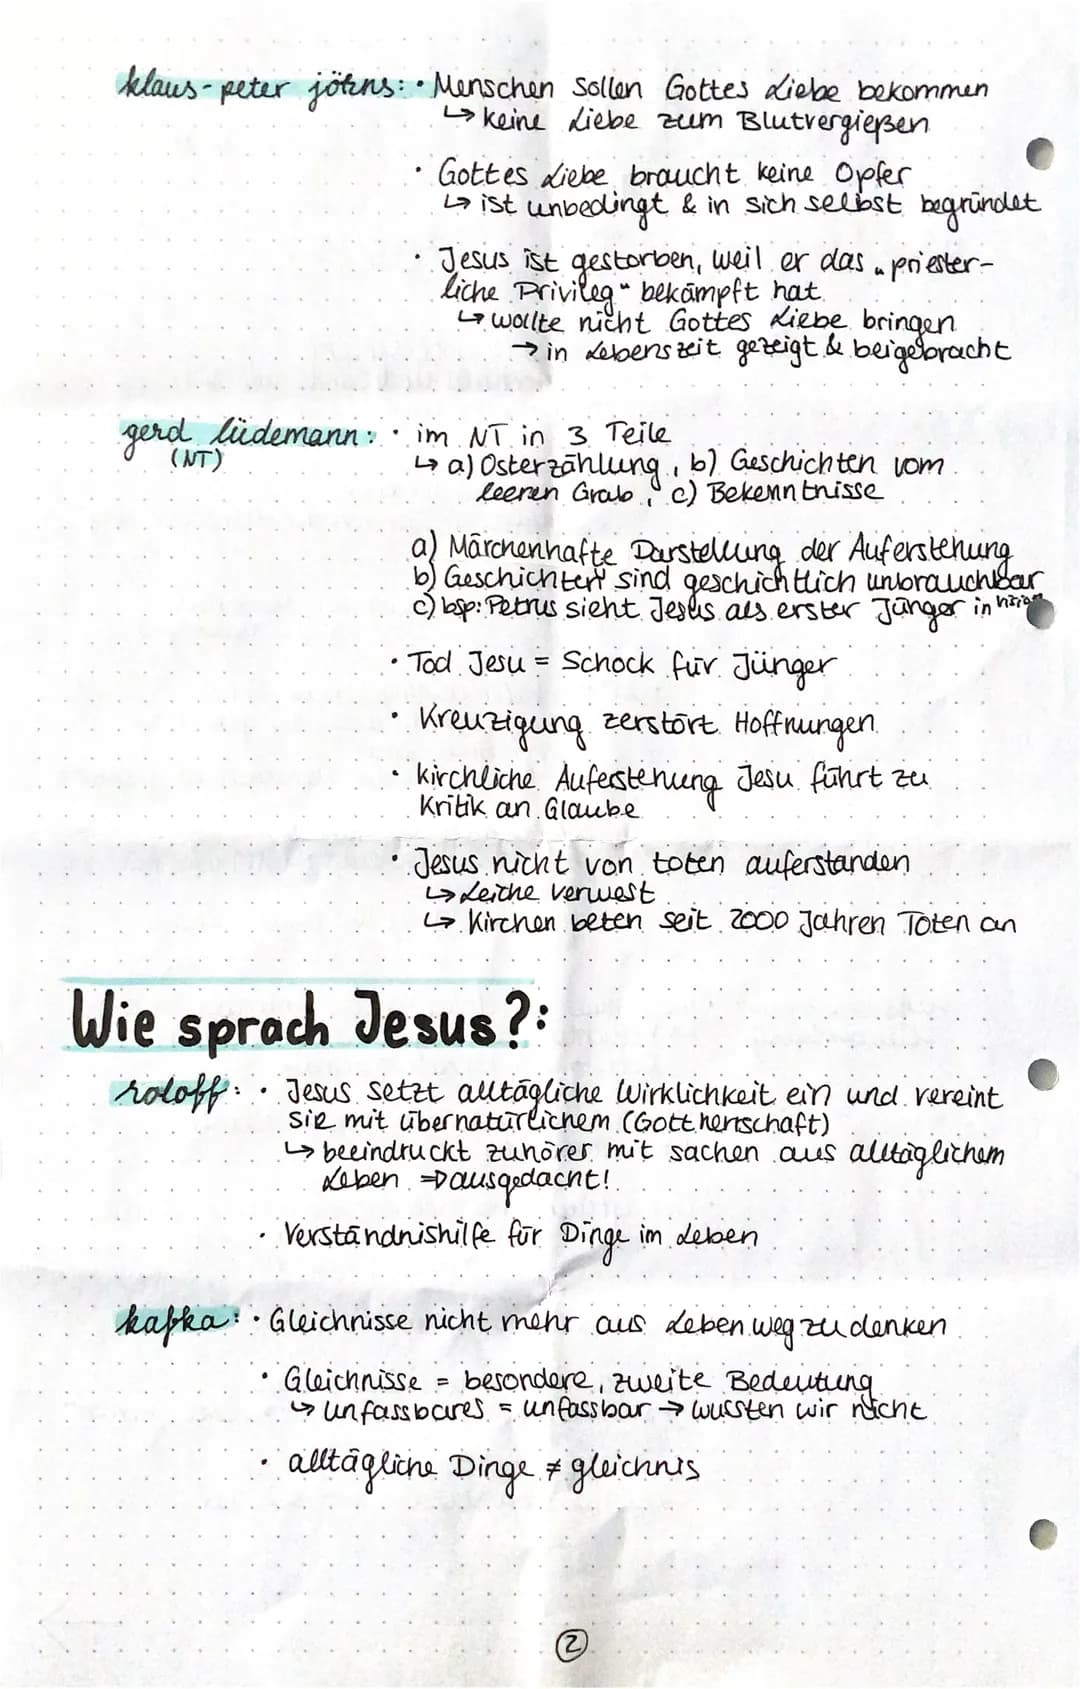 klaus-peter jöhns: • Menschen sollen Gottes Liebe bekommen
↳ keine Liebe zum Blutvergießen
• Gottes Liebe braucht keine Opfer
↳ ist unbedingt & in sich selbst begründet
• Jesus ist gestorben, weil er das „priester-
liche Privileg" bekämpft hat
↳ wollte nicht Gottes Liebe bringen
→ in Lebenszeit gezeigt & beigebracht
gerd lüdemann: • im NT in 3 Teile
(NT) ↳ a) Osterzählung, b) Geschichten vom
leeren Grab, c) Bekenntnisse
a) Märchenhafte Darstellung der Auferstehung
b) Geschichten sind geschichtlich unbrauchbar
c) bsp: Petrus sieht Jesus als erster Jünger in
• Tod Jesu = Schock für Jünger
• Kreuzigung zerstört Hoffnungen
• kirchliche Auferstehung Jesu führt zu
Kritik an Glaube
• Jesus nicht von toten auferstanden
↳ Leiche verwest
↳ Kirchen beten seit 2000 Jahren Toten an
Wie sprach Jesus?:
roloff: • Jesus setzt alltägliche Wirklichkeit ein und vereint
sie mit übernatürlichem (Gottherrschaft)
↳ beeindruckt zuhörer mit sachen aus alltäglichem
Leben ⇒ ausgedacht!
• Verständnishilfe für Dinge im Leben
kafka: • Gleichnisse nicht mehr aus Leben weg zu denken
• Gleichnisse = besondere, zweite Bedeutung
↳ unfassbares = unfassbar → wussten wir nicht
• alltägliche Dinge ≠ gleichnis
2